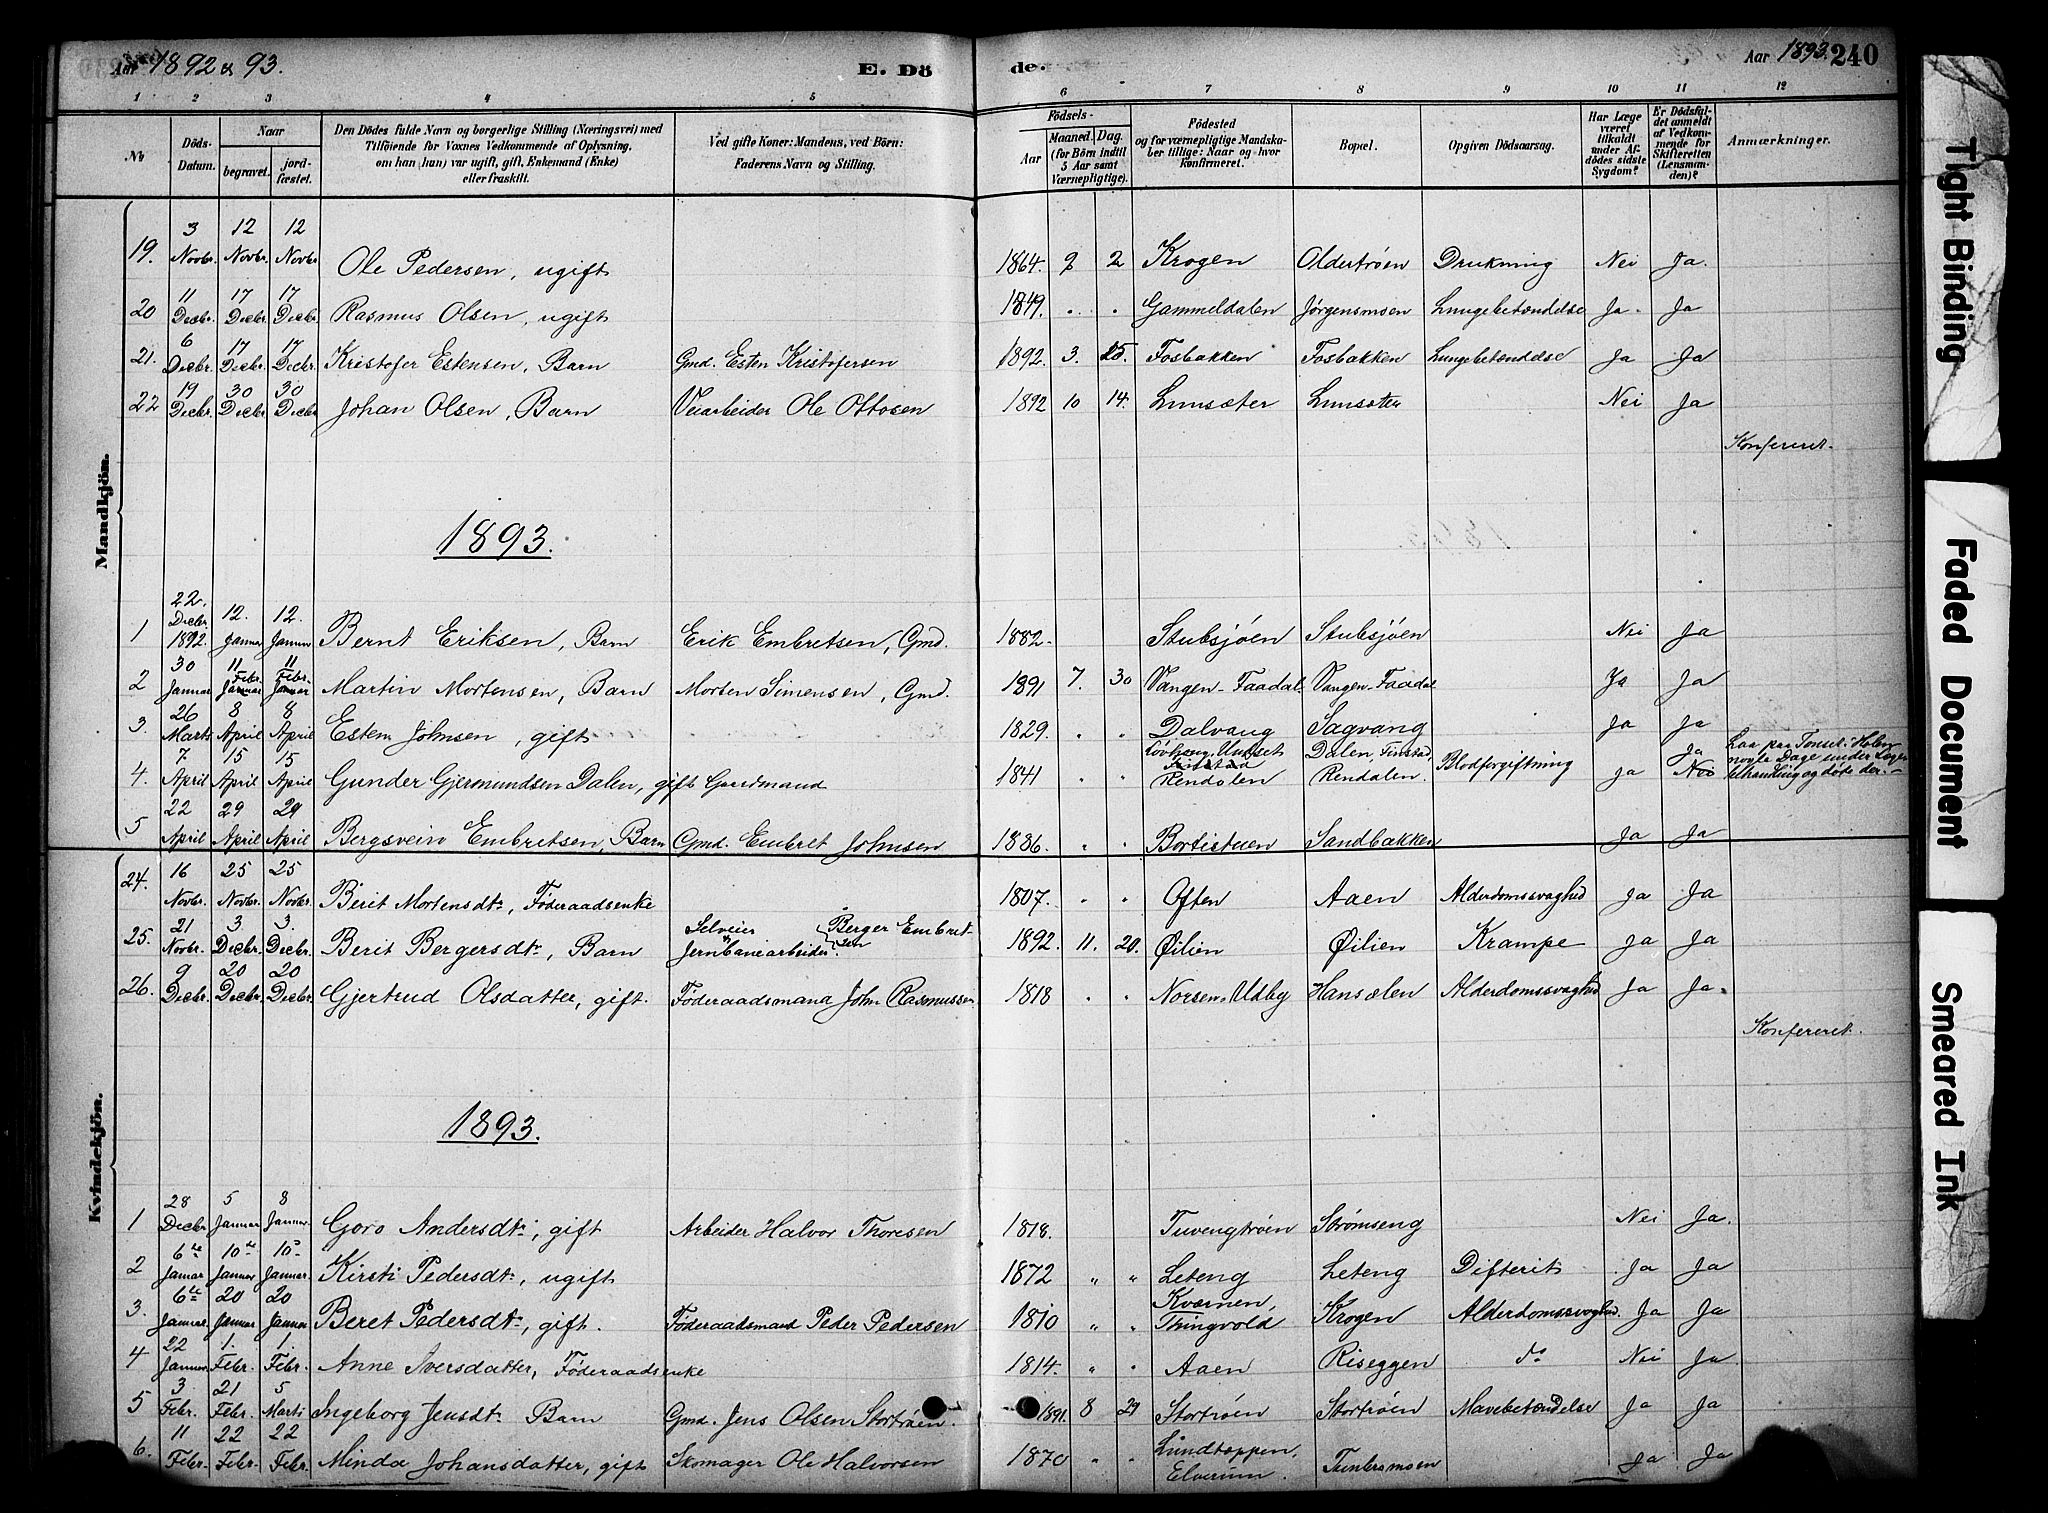 Aar 1892 & 93.
E. Dö
de.
Aar 1893.
240
1 2 3 4 5 6 7 8 9 10 11 12
No
Döds-Datum.
Naar
begravet.
jord-fæstet.
Den Dödes fulde Navn og borgerlige Stilling (Næringsvei) med
Tilföiende for Voxnes Vedkommende af Oplysning,
om han (hun) var ugift, gift, Enkemand (Enke)
eller fraskilt.
Ved gifte Koner: Mandens, ved Börn:
Faderens Navn og Stilling.
Födsels-
Aar
Maaned. Dag.
(for Börn indtil
5 Aar samt
Værnepligtige).
Födested
og for værnepligtige Mandska-
ber tillige: Naar og hvor
konfirmeret.
Bopæl.
Opgiven Dödsaarsag.
Har Læge
været
tilkaldt
under Af-
dödes sidste
Sygdom?
Er Dödsfal-
det anmeldt
af Vedkom-
mende for
Skifteretten
(Lensman-
den)?
Anmærkninger.
Mandkjön.
19. 3 Novbr. 12 Novbr. 12 Novbr Ole Pedersen, ugift 1864. 9 2 Krogen Oldertrøen Drukning Nei Ja.
20 11 Decbr. 17 Decbr. 17 Decbr. Rasmus Olsen, ugift 1849. . . Gammeldalen Jørgensmoen Lungebetændelse Ja. Ja
21. 6 Decbr. 17 Decbr. 17 Decbr. Kristofer Estensen, Barn Gmd. Esten Kristofersen 1892. 3. 25. Fosbakken Fosbakken Lungebetændelse Ja Ja
22 19 Decbr. 30 Decbr. 30 Decbr. Johan Olsen, Barn Veiarbeider Ole Ottosen 1892 10 14. Lunsæter Lunsæter Nei Ja
Konfereret.
1893.
1 22. Decbr. 1892. 12. Januar 12. Januar Bernt Eriksen, Barn Erik Embretsen, Gmd. 1882. Stubsjøen Stubsjøen Nei Ja
2 30 Januar 11 Febr. Januar 11 Febr. Januar Martin Mortensen, Barn Morten Simensen, Gmd. 1891 7. 30 Vangen-Faadal Vangen-Faadal Ja Ja
3. 26 Marts 8 April 8 April Esten Johnsen, gift 1829. " " Dalvang Sagvang Ja Ja
4. 7 April 15 April 15 April Gunder Gjermundsen Dalen, gift Gaardmand 1841 " " Rendalen Dalen, Finstad, Rendalen. Blodforgiftning Ja Ja Laa paa Tonset i nogle Dage under behandling og døde der.
5 22 April 29 April 29 April Bergsvein Embretsen, Barn Gmd. Embret Johnsen 1886. " " Bortistuen Sandbakken Ja Ja
Kvindekjön.
24. 16 Novbr. 25 Novbr. 25 Novbr. Berit Mortensdtr, Føderaadsenke 1807. " " Often Aaen Alderdomssvaghed Ja Ja
25. 21 Novbr. 3 Decbr. 3. Decbr. Berit Bergersdtr, Barn Selveier & Jernbanearbeider Berger Embretsen 1892. 11. 20. Øilien Øilien Krampe Ja Ja
26. 9 Decbr. 20 Decbr. 20 Decbr. Gjertrud Olsdatter, gift. Føderaadsmand John Rasmussen. 1818 " " Norsen, Udby Hansælen Alderdomssvaghed Ja Ja.
Konfereret.
1893.
1 28 Decbr 5 Januar 8 Januar. Goro Andersdtr, gift Arbeider Halvor Thoresen 1818. Tuvengtrøen Strømseng Nei Ja.
2 6te Januar 10de Januar 10de Januar. Kirsti Pedersdtr, ugift 1872 " " Leteng Leteng Difterit Ja Ja
3. 6te Januar. 20 Januar 20 Januar Beret Pedersdtr, gift. Føderaadsmand Peder Pedersen 1810 " " Kværnen, Thingvold Krogen Alderdomssvaghed Ja Ja
4 22 Januar. 1. Febr. 1. Febr. Anne Iversdatter, Føderaadsenke 1814. " " Aaen Riseggen do Nei Ja
5 3 Febr. 21 Febr. 5 Marts Ingeborg Jensdtr Barn Gmd. Jens Olsen Stortrøen. 1891. 8 29 Stortrøen Stortrøen Mavebetændelse Ja Ja
6. 11 Febr. 22 Febr. 22 Febr. Minda Johansdatter, gift Skomager Ole Halvorsen 1870 " " Lundtoppen, Elverum. Ja Ja
Tight Binding
Faded Document
Smeared Ink